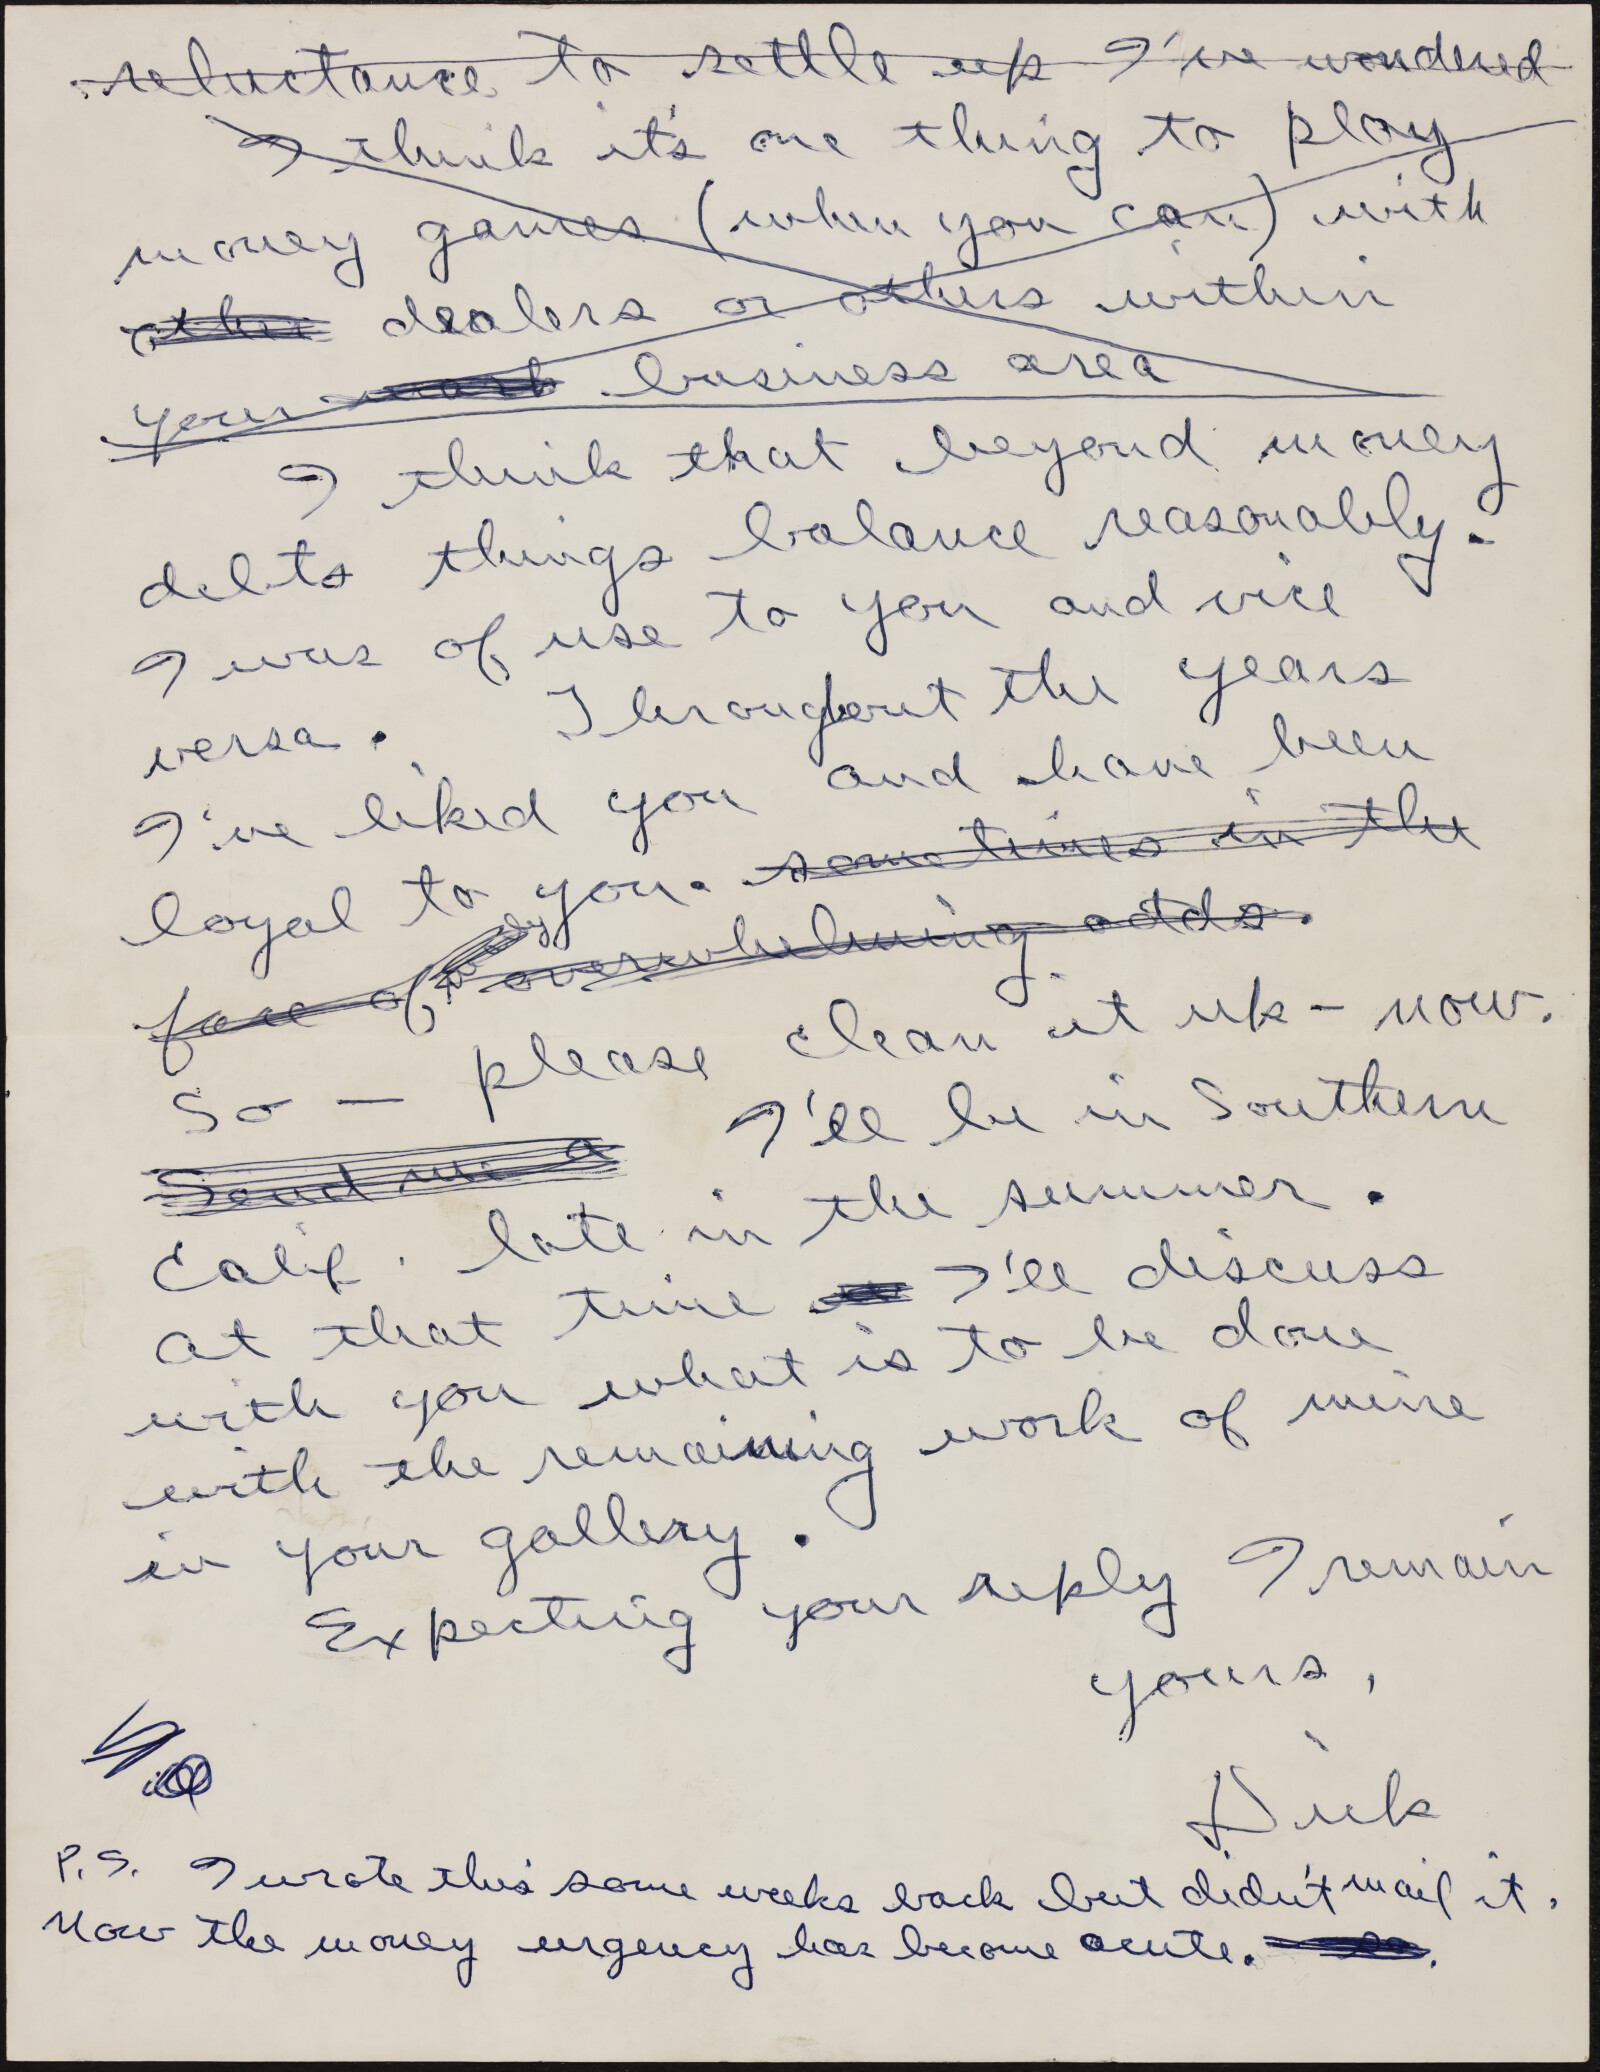 reluctance to settle up I've wondered
I think it's one thing to play
money games (when you can) with
other dealers or others within
your work business area
I think that beyond money
debts things balance reasonably.
I was of use to you and vice
versa. Throughout the years
I've liked you and have been
loyal to you. sometimes in the
face of overwhelming odds.
So — please clean it up - now.
Send me a I'll be in Southern
Calif. late in the summer.
At that time I'll discuss
with you what is to be done
with the remaining work of mine
in your gallery.
Expecting your reply I remain
yours,
Dick
P.S. I wrote this some weeks back but didn't mail it.
Now the money urgency has become acute.